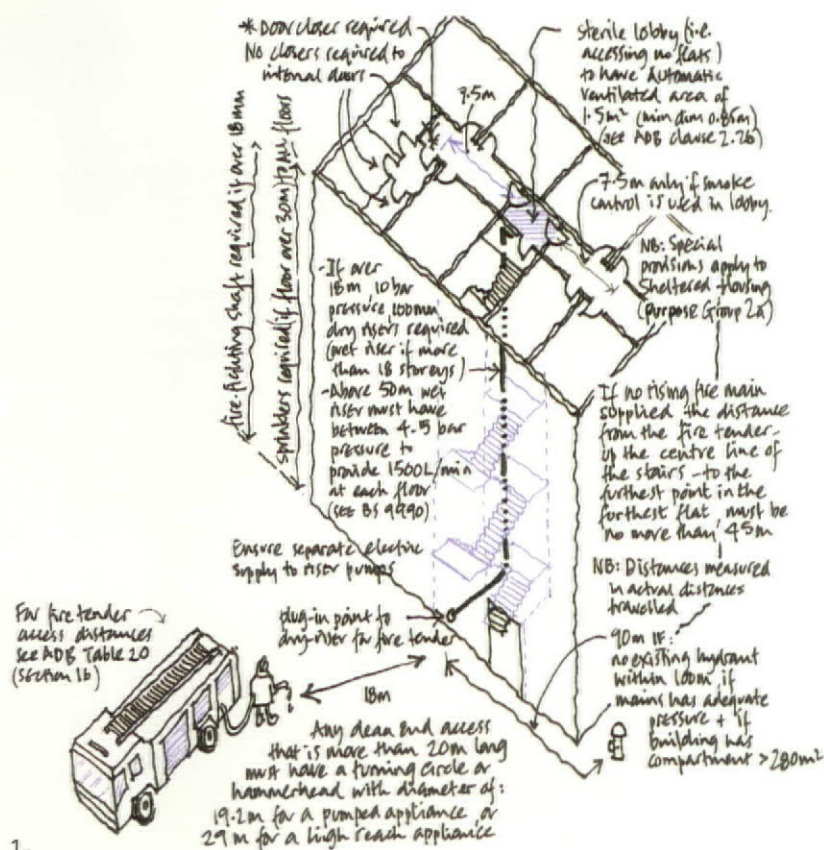 * Door closer required
No closers required to
internal doors
9.5m
sterile lobby (i.e.
accessing no flats)
to have automatic
ventilated area of
1.5m² (min dim 0.85m)
(see ADB clause 2.26)
7.5m only if smoke
control is used in lobby.
NB: Special
provisions apply to
Sheltered Housing
(Purpose Group 2a)
fire-fighting shaft required if over 18mm
sprinklers required (if floor over 30m) to ALL floors
-If over
18m 10 bar
pressure 100mm
dry risers required
(wet riser if more
than 18 storeys)
-Above 50m wet
riser must have
between 4-5 bar
pressure to
provide 1500L/min
at each floor
(SEE BS 9990)
If no rising fire main
supplied the distance
from the fire tender-
up the centre line of
the stairs - to the
furthest point in the
furthest flat, must be
no more than 45m
NB: Distances measured
in actual distances
travelled
Ensure separate electric
supply to riser pumps
plug-in point to
dry-riser for fire tender
For fire tender
access distances
see ADB Table 20
(section 16)
18m
90m IF:
no existing hydrant
within 100m, if
mains has adequate
pressure + if
building has
compartment >280m²
Any dead end access
that is more than 20m long
must have a turning circle or
hammerhead with diameter of:
19.2m for a pumped appliance, or
29m for a high reach appliance